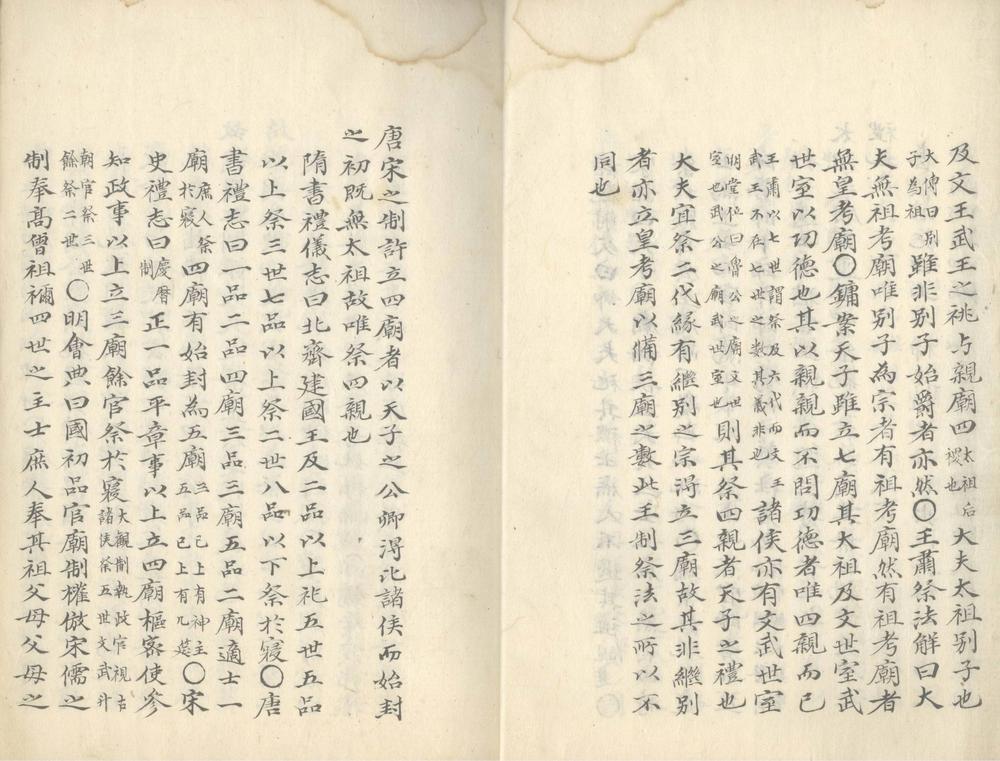 及文王武王之祧与親廟四太祖后稷也大夫太祖别子也
大傳曰别子為祖雖非别子始爵者亦然〇王肅祭法解曰大
夫無祖考廟唯别子為宗者有祖考廟然有祖考廟者
無皇考廟〇鏞案天子雖立七廟其大祖及文世室武
世室以功德也其以親親而不問功德者唯四親而已
王肅以七世謂祭及六代而文王武王不在七世之數其義非也諸侯亦有文武世室
明堂位曰魯公之廟文世室也武公之廟武世室也則其祭四親者天子之禮也
大夫宜祭二代緣有繼别之宗淂立三廟故其非繼别
者亦立皇考廟以備三廟之數此王制祭法之所以不
同也
唐宋之制許立四廟者以天子之公卿淂比諸侯而始封
之初既無太祖故唯祭四親也
隋書禮儀志曰北齊建國王及二品以上祀五世五品
以上祭三世七品以上祭二世八品以下祭於寢〇唐
書禮志曰一品二品四廟三品三廟五品二廟適士一
廟庶人祭於寢四廟有始封為五廟三品已上有神主五品已上有几筵〇宋
史禮志曰慶曆制正一品平章事以上立四廟樞密使参
知政事以上立三廟餘官祭於寢大觀制執政官視古諸侯祭五世文武升
朝官祭三世餘祭二世〇明會典曰國初品官廟制權倣宋儒之
制奉高曾祖禰四世之主士庶人奉其祖父母父母之